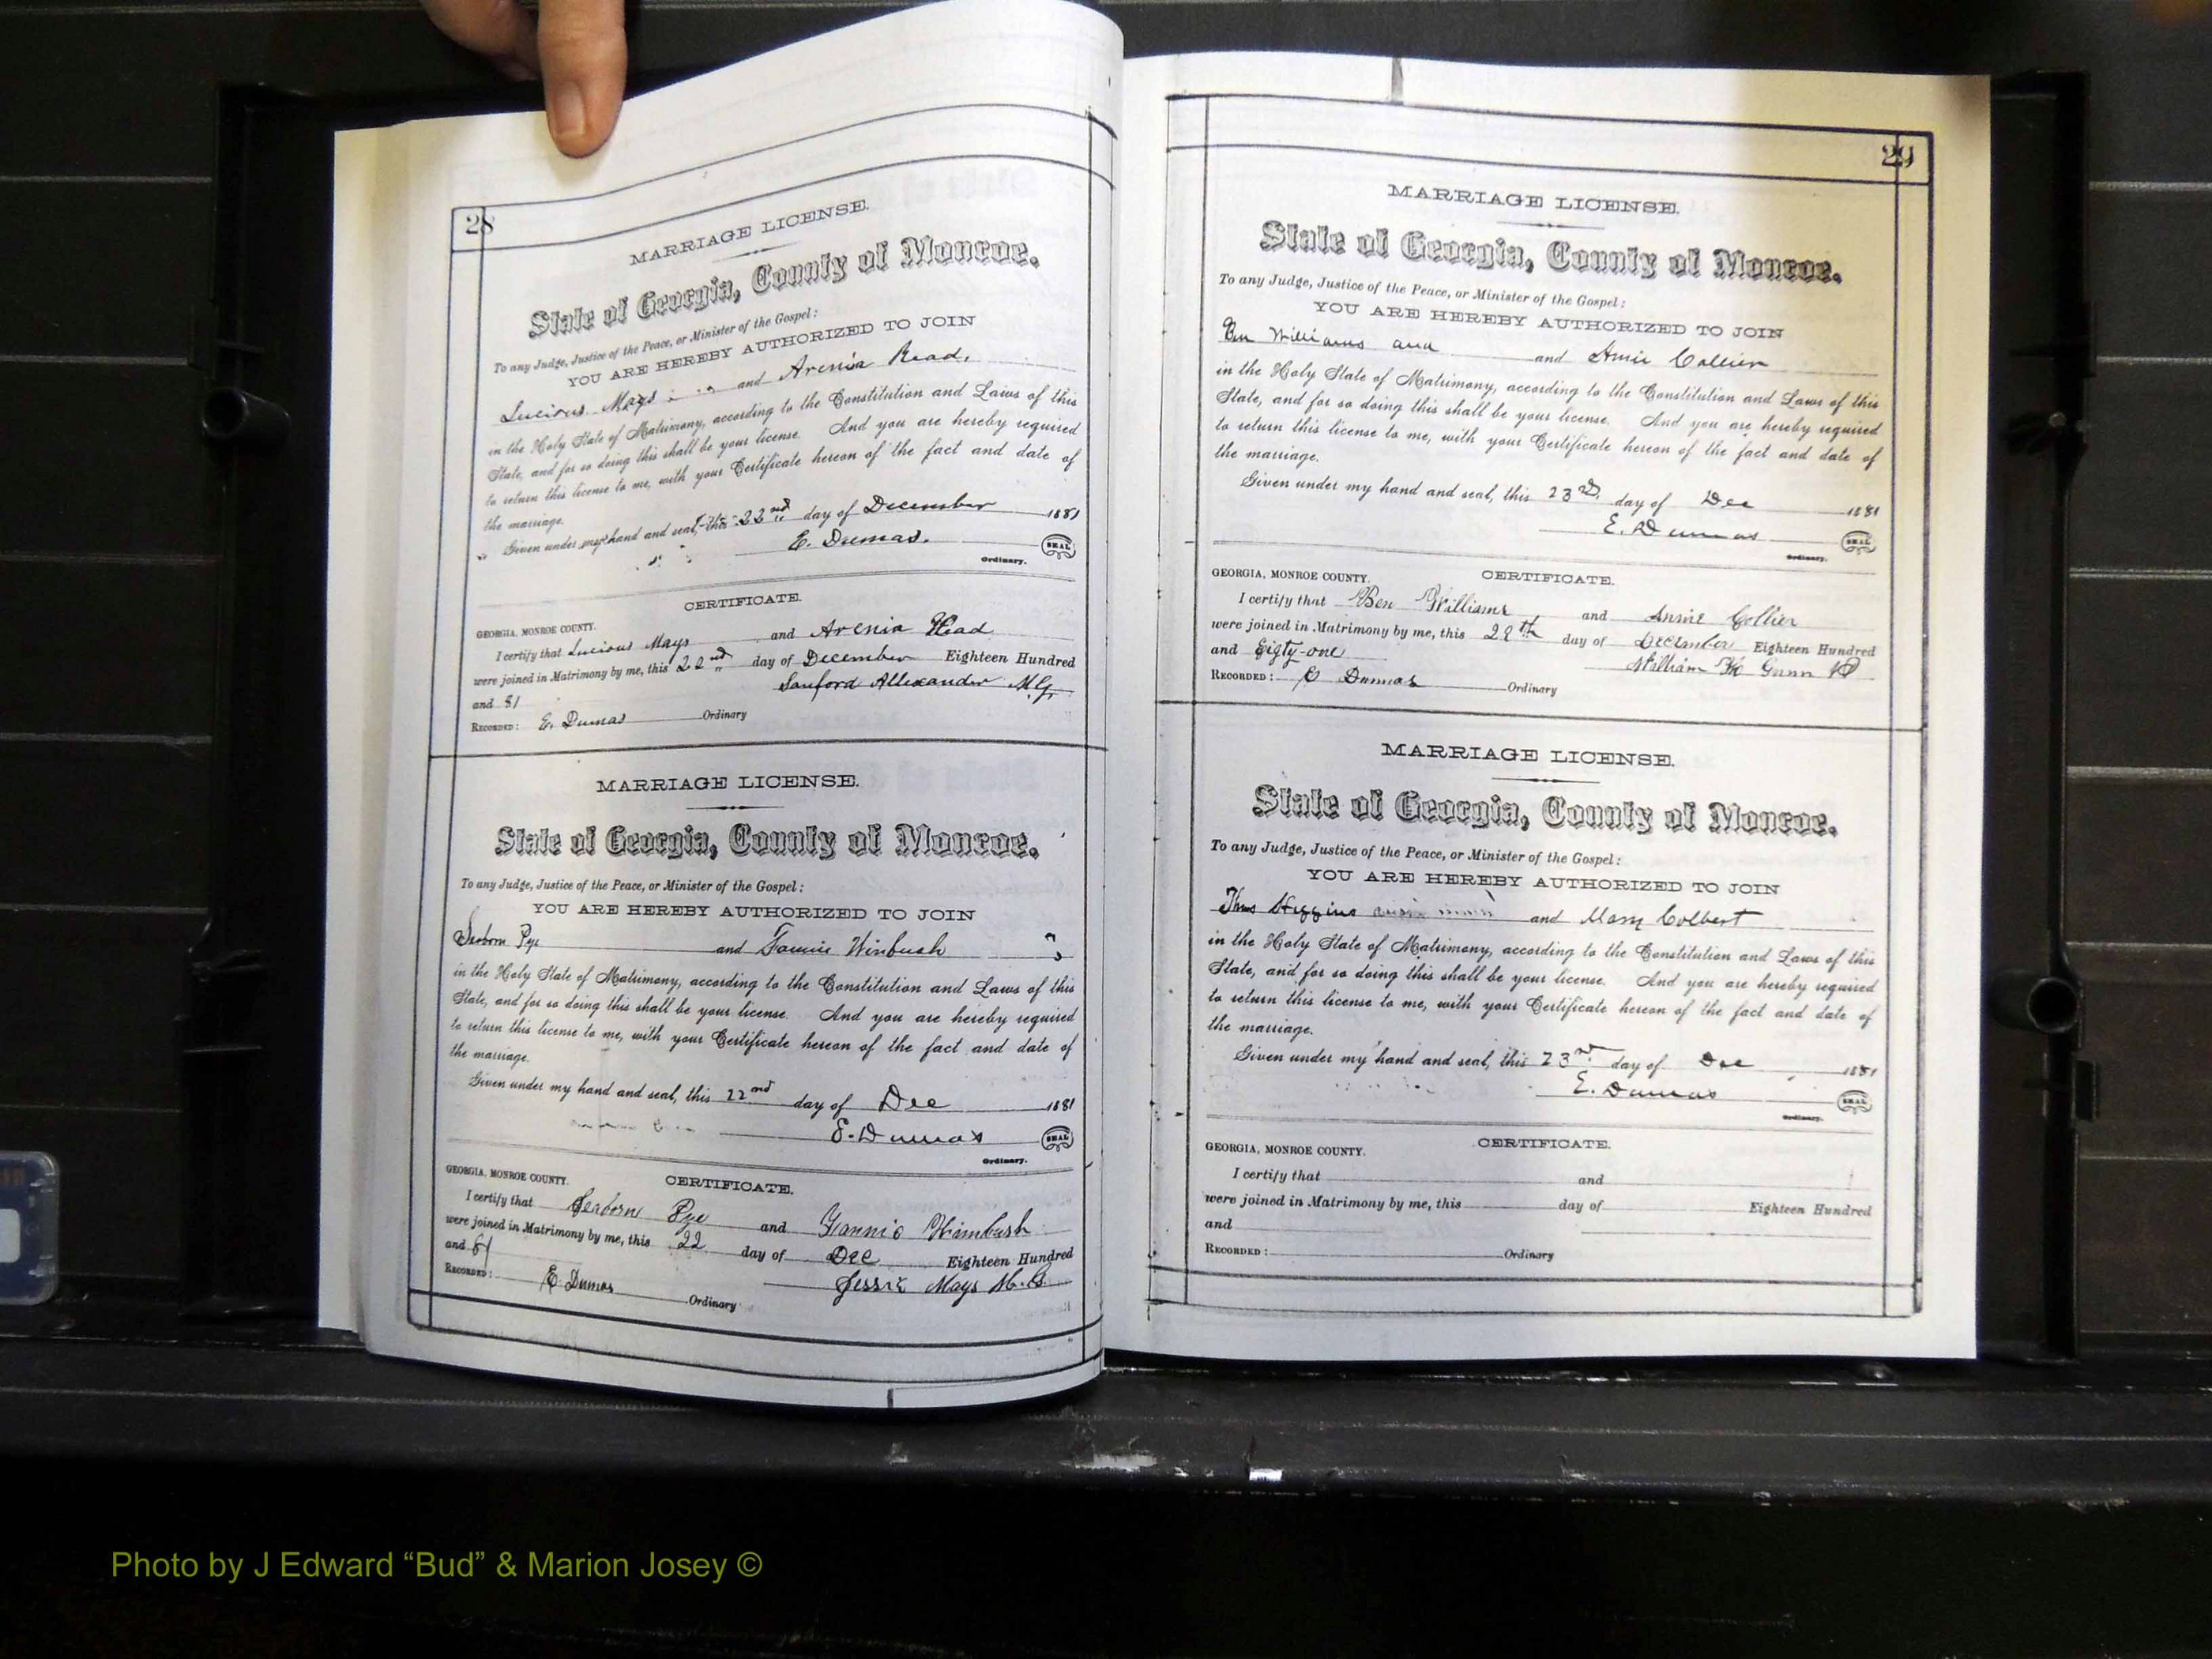 28
MARRIAGE LICENSE.
State of Georgia, County of Monroe.
To any Judge, Justice of the Peace, or Minister of the Gospel:
YOU ARE HEREBY AUTHORIZED TO JOIN
Lucious Mays and Arenia Head.
in the Holy State of Matrimony, according to the Constitution and Laws of this
State, and for so doing this shall be your license. And you are hereby required
to return this license to me, with your Certificate hereon of the fact and date of
the marriage.
Given under my hand and seal, this 22nd day of December 1881
E. Dumas. SEAL
Ordinary.
CERTIFICATE.
GEORGIA, MONROE COUNTY.
I certify that Lucious Mays and Arenia Head
were joined in Matrimony by me, this 22nd day of December Eighteen Hundred
and 81 Sanford Allexander M.G.
RECORDED: E. Dumas Ordinary
MARRIAGE LICENSE.
State of Georgia, County of Monroe.
To any Judge, Justice of the Peace, or Minister of the Gospel:
YOU ARE HEREBY AUTHORIZED TO JOIN
Seaborn Pye and Fannie Winbush
in the Holy State of Matrimony, according to the Constitution and Laws of this
State, and for so doing this shall be your license. And you are hereby required
to return this license to me, with your Certificate hereon of the fact and date of
the marriage.
Given under my hand and seal, this 22nd day of Dec 1881
E. Dumas SEAL
Ordinary.
GEORGIA, MONROE COUNTY. CERTIFICATE.
I certify that Seaborn Pye and Fannie Wimbush
were joined in Matrimony by me, this 22 day of Dec Eighteen Hundred
and 81 Jessie Mays M.G.
RECORDED: E. Dumas Ordinary
29
MARRIAGE LICENSE.
State of Georgia, County of Monroe.
To any Judge, Justice of the Peace, or Minister of the Gospel:
YOU ARE HEREBY AUTHORIZED TO JOIN
Ben Williams and and Annie Collier
in the Holy State of Matrimony, according to the Constitution and Laws of this
State, and for so doing this shall be your license. And you are hereby required
to return this license to me, with your Certificate hereon of the fact and date of
the marriage.
Given under my hand and seal, this 23rd day of Dec 1881
E. Dumas SEAL
Ordinary.
GEORGIA, MONROE COUNTY. CERTIFICATE.
I certify that Ben Williams and Annie Collier
were joined in Matrimony by me, this 28th day of December Eighteen Hundred
and Eigty-one William Gunn
RECORDED: E Dumas Ordinary
MARRIAGE LICENSE.
State of Georgia, County of Monroe.
To any Judge, Justice of the Peace, or Minister of the Gospel:
YOU ARE HEREBY AUTHORIZED TO JOIN
Thos Higgins and Mary Colbert
in the Holy State of Matrimony, according to the Constitution and Laws of this
State, and for so doing this shall be your license. And you are hereby required
to return this license to me, with your Certificate hereon of the fact and date of
the marriage.
Given under my hand and seal, this 23rd day of Dec 1881
E. Dumas SEAL
Ordinary.
GEORGIA, MONROE COUNTY. CERTIFICATE.
I certify that and
were joined in Matrimony by me, this day of Eighteen Hundred
and
RECORDED: Ordinary
Photo by J Edward “Bud” & Marion Josey ©